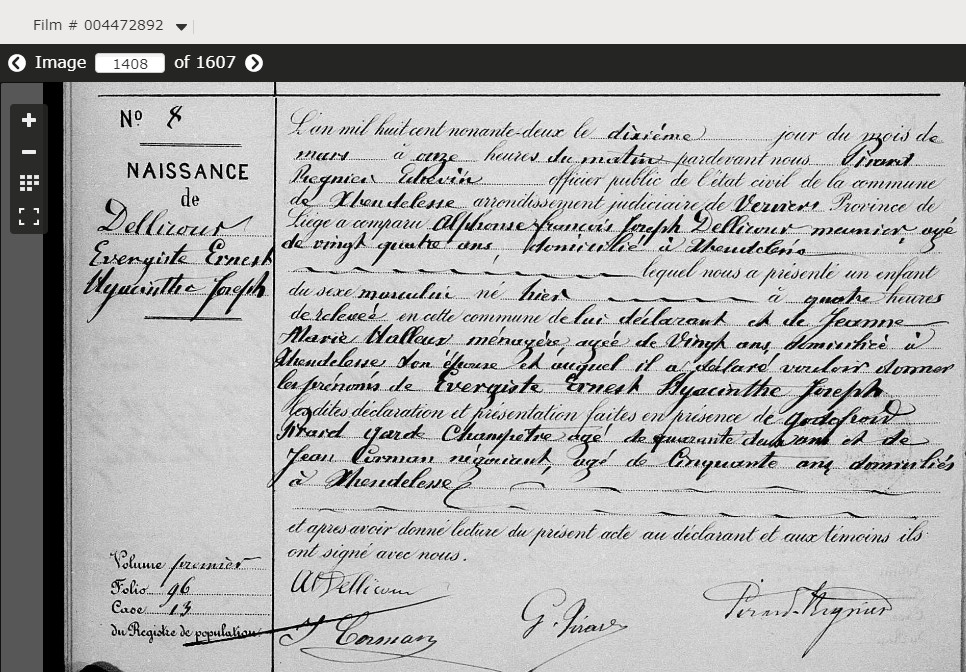 Film # 004472892
Image 1408 of 1607
Nº 8
NAISSANCE
de
Dellicour
Evergiste Ernest
Hyacinthe Joseph
L'an mil huit cent nonante-deux le dixième jour du mois de
mars à onze heures du matin pardevant nous Pirard
Regnier Echevin officier public de l'état civil de la commune
de Xhendelesse arrondissement judiciaire de Verviers Province de
Liège a comparu Alphonse françois Joseph Dellicour meunier, agé
de vingt quatre ans, domicilié à Xhendelesse
lequel nous a présenté un enfant
du sexe masculin né hier à quatre heures
de relevée en cette commune de lui déclarant et de Jeanne
Marie Halleux ménagère agée de Vingt ans, domiciliée à
Xhendelesse son épouse et auquel il a déclaré vouloir donner
les prénoms de Evergiste Ernest Hyacinthe Joseph
lesdites déclaration et présentation faites en présence de Godefroid
Pirard garde Champêtre agé de quarante deux ans et de
Jean Corman négociant, agé de Cinquante ans domiciliés
à Xhendelesse
et après avoir donné lecture du présent acte au déclarant et aux témoins ils
ont signé avec nous.
Volume premier
Folio 96
Case 13
du Registre de population
Al Dellicour
J Corman
G. Pirard
Pirard-Regnier